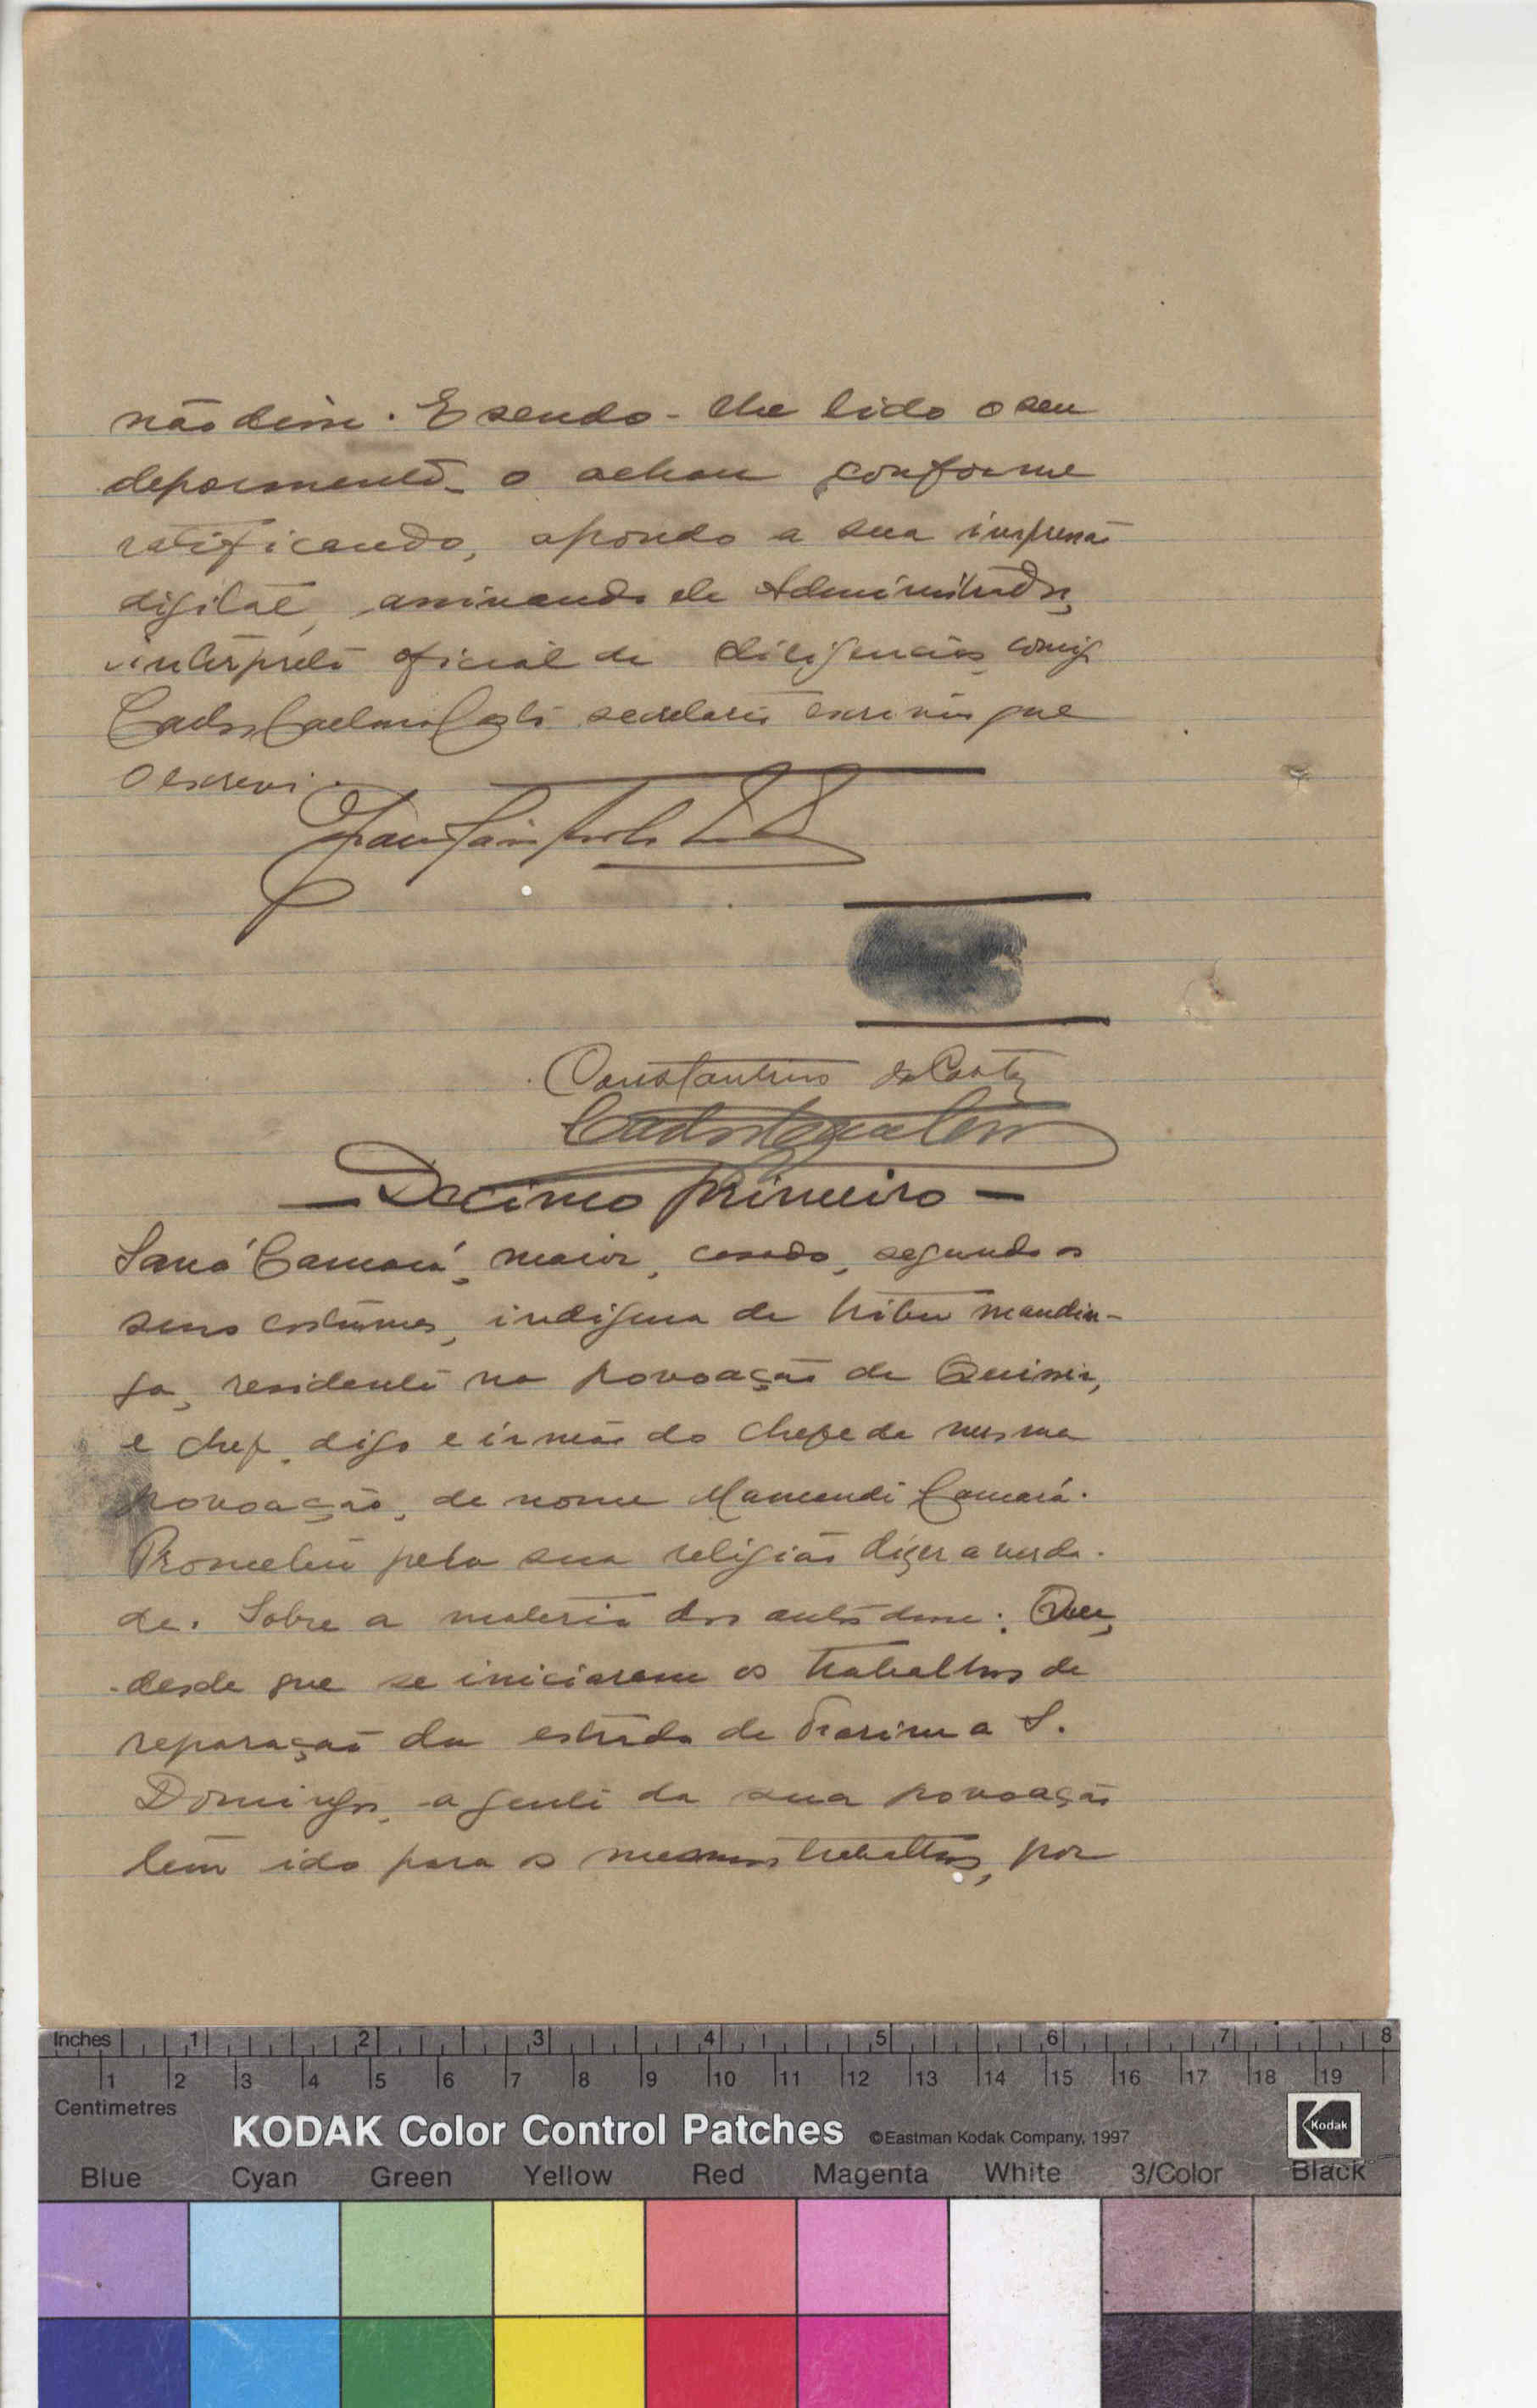 não disse. E sendo-lhe lido o seu
depoimento o achou conforme
ratificando, apondo a sua impressão
digital, assinando ele Administrador,
interprete oficial de diligencias comigo
Carlos Caetano Costa secretario escrivão que
o escrevi.
Constantino da Costa
— Decimo primeiro —
Saná Camará, maior, casado, segundo os
seus costumes, indigena da tribu mandin-
ga, residente na povoação de
e chefe, digo e irmão do chefe da mesma
povoação, de nome Mamundi Camará.
Prometeu pela sua religião dizer a verda-
de. Sobre a materia dos autos disse: Que,
desde que se iniciaram os trabalhos de
reparação da estrada de Farim a S.
Domingos, a gente da sua povoação
tem ido para os mesmos trabalhos, por
Inches 1 2 3 4 5 6 7 8
1 2 3 4 5 6 7 8 9 10 11 12 13 14 15 16 17 18 19
Centimetres
KODAK Color Control Patches ©Eastman Kodak Company, 1997 Kodak
Blue Cyan Green Yellow Red Magenta White 3/Color Black